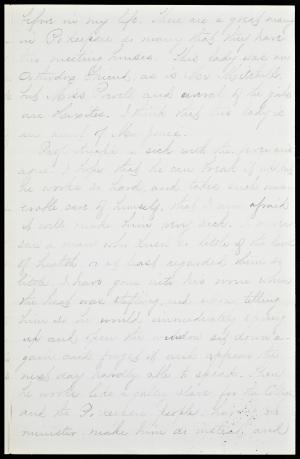 before in my life. There are a great many
in Po'keepsie so many that they have
two meeting houses. This lady was an
Orthodox Friend, as is Mrs Mitchell,
but Miss Powell and several of the girls
are Hicksites. I think that this lady is
an aunt of Mr
Prof. is sick with the fever and
ague. I hope that he can break it up, as
he works so hard and takes such
care of himself, that I am afraid
it will make him very sick. I never
saw a man who knew so little of the laws
of health, or at least regarded them so
little. I have gone into his room when
the heat was stifling, and upon telling
him so he would immediately spring
up and open the window sit down a-
gain and forget it and appear the
next day hardly able to speak. Then
he works like a galley slave for the College
and the Po'keepsie people having no
minister make him do instead, and